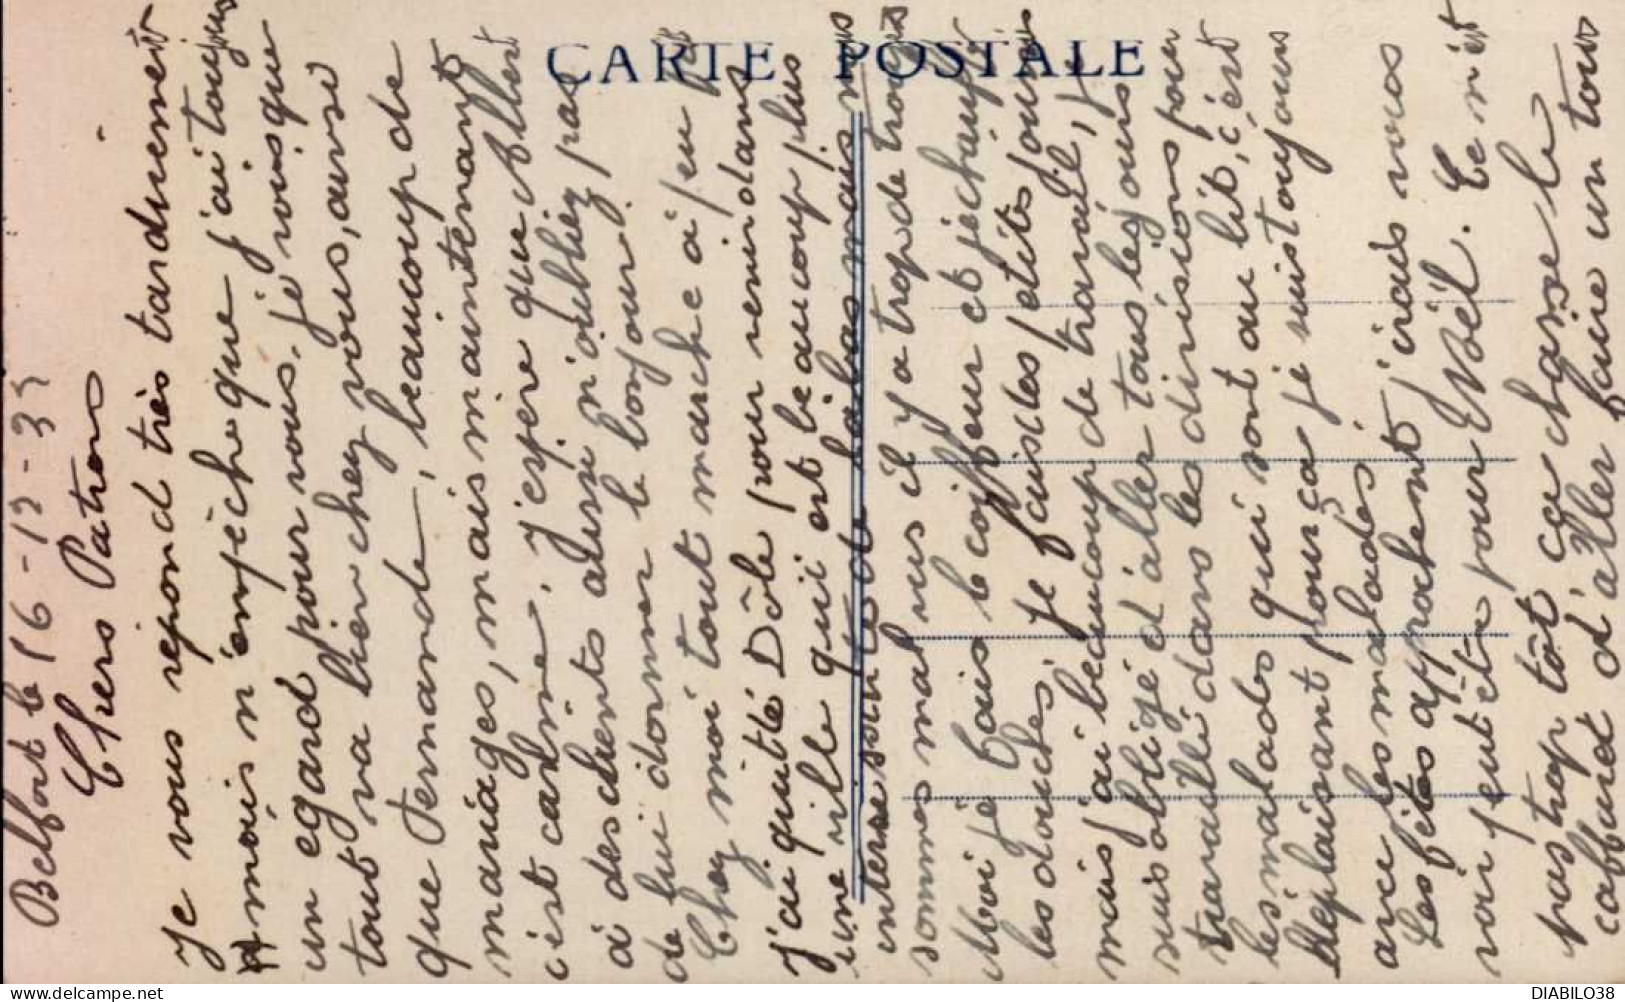 CARTE POSTALE
Belfort le 16-12-35
Chers Patrons
Je vous repond très tardivement
mais n'empèche que j'ai toujours
un egard pour vous. je vois que
tout va bien chez vous, ausi
que Fernande, beaucoup de
mariages, mais maintenant
c'est calme. j'espere que Albert
a des clients aussi n'oubliez pas
de lui donner le bonjour.
Chez moi tout marche a peu près
j'ai quitté Dôle pour venir dans
une ville qui est beaucoup plus
interessante de là bas mais nous
sommes mal vus il y a trop de troupes
Moi je fais le coiffeur et je chauffe
les douches, je fais des petits journées
mais j'ai beaucoup de travail, je
suis obligé d'aller tous les jours
travaillé dans les divisions pour
les malades qui sont au lit, c'est
déplaisant pour ça je suis toujours
avec les malades.
Les fêtes approchent j'irais vous
voir peut être pour Noël. Ce n'est
pas trop tôt ça chasse le
caffuret d'aller faire un tour
DIABILO38